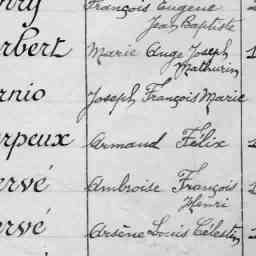 François Eugène
Jean Baptiste
rbert Marie Ange Joseph
Mathurin
rnio Joseph François Marie
rpeux Armand Félix
ervé Ambroise François
Henri
ervé Arsène Louis Célestin